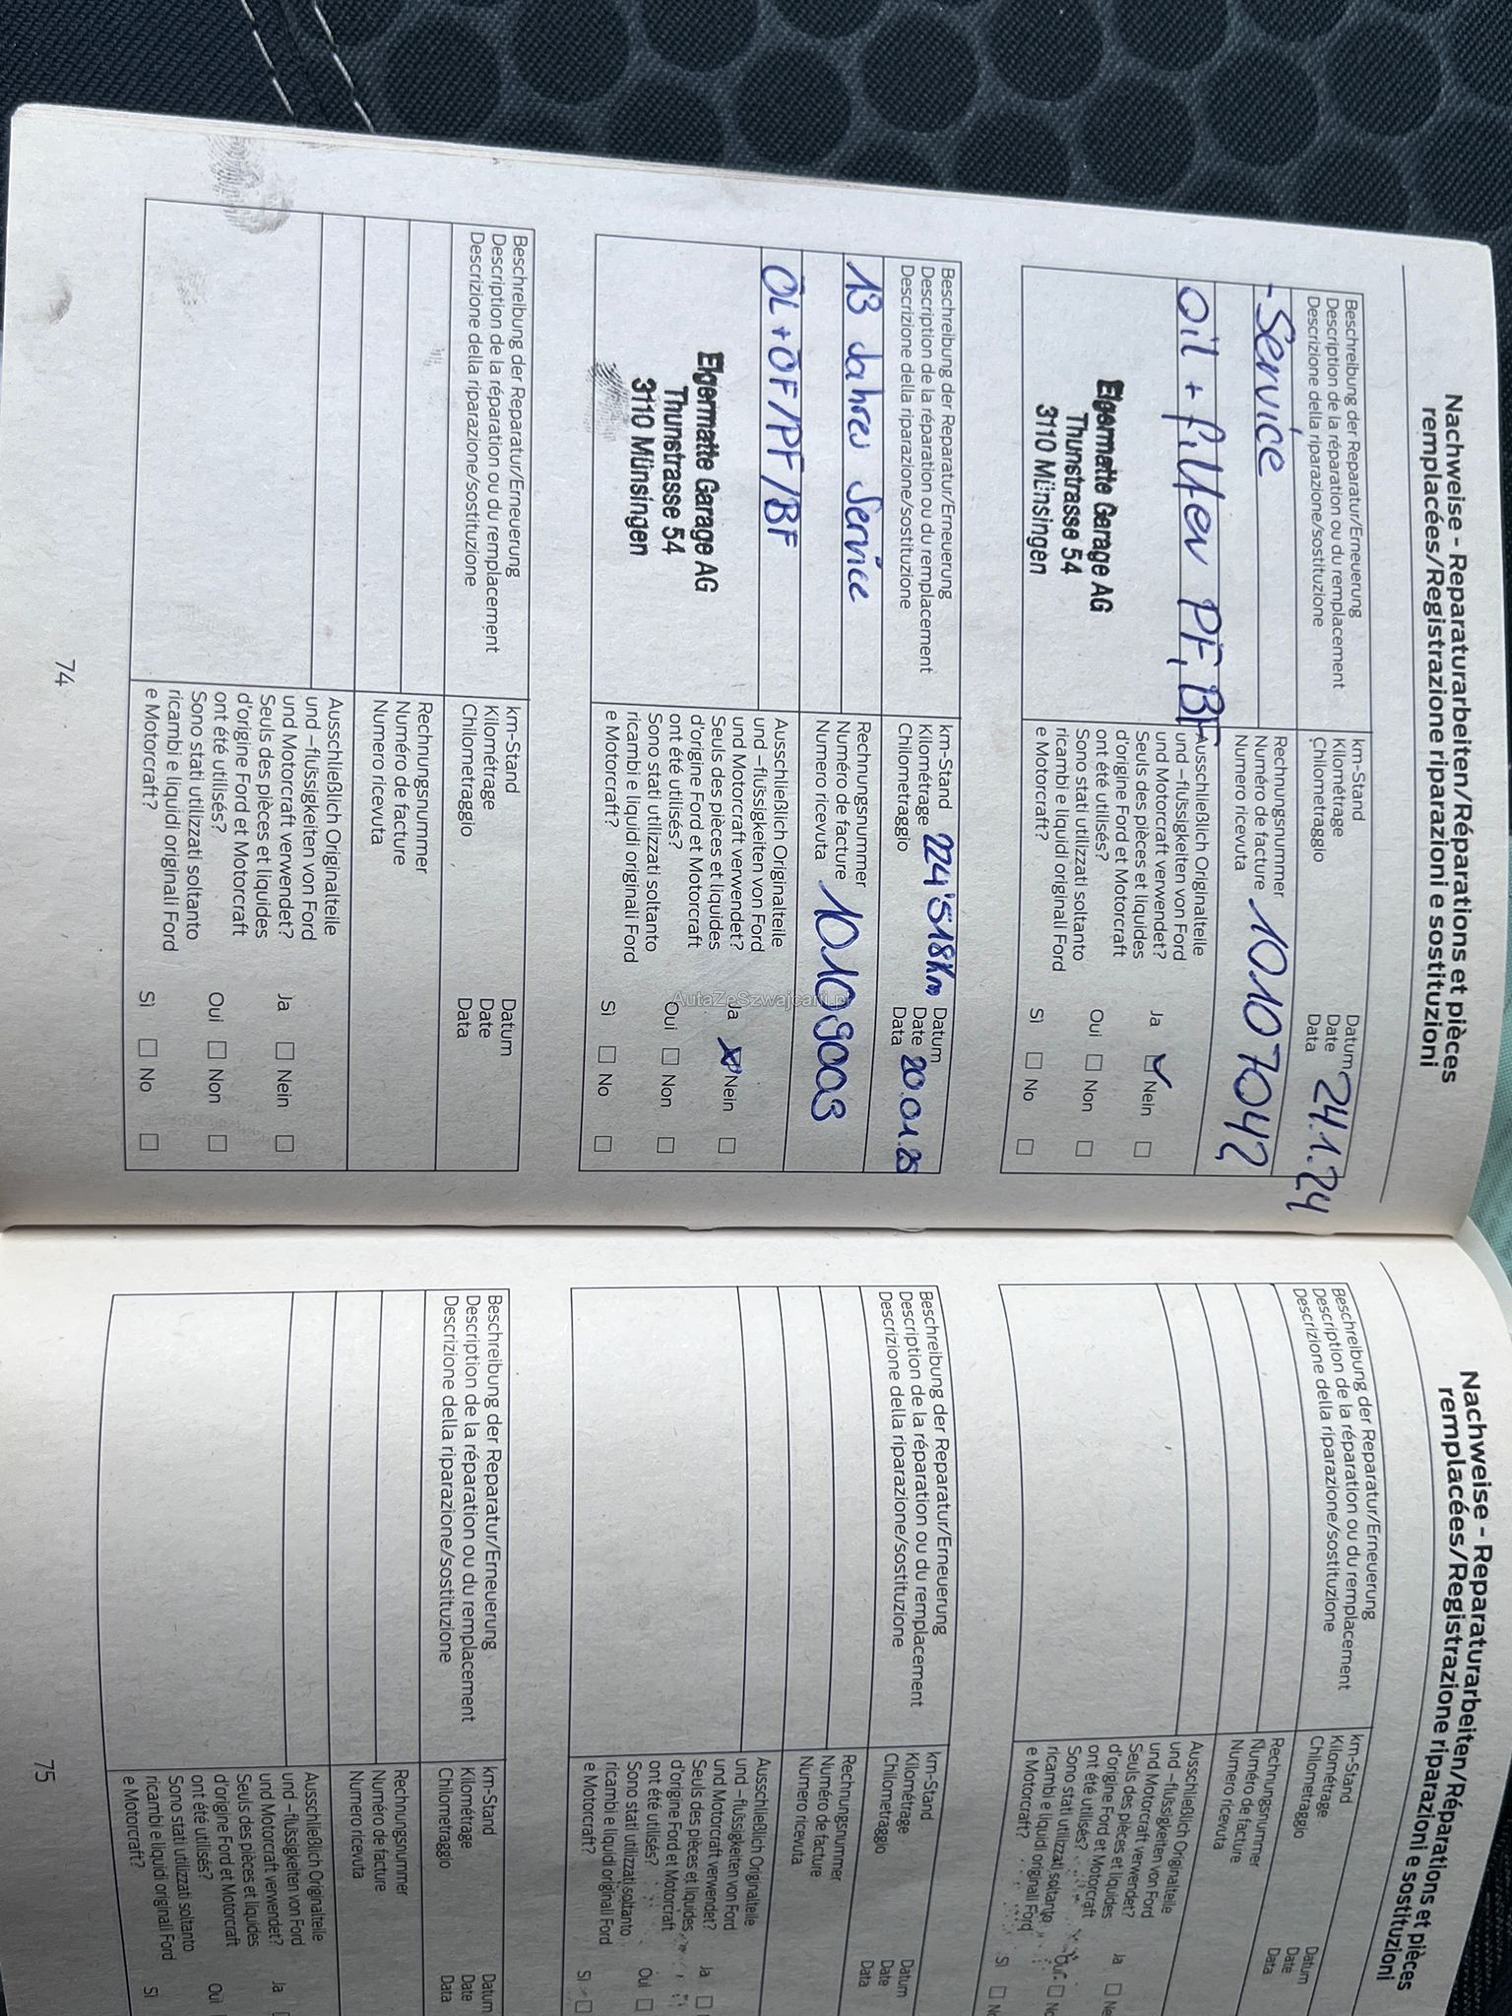 Nachweise - Reparaturarbeiten/Réparations et pièces
remplacées/Registrazione riparazioni e sostituzioni
Beschreibung der Reparatur/Erneuerung
Description de la réparation ou du remplacement
Descrizione della riparazione/sostituzione
km-Stand
Kilométrage
Chilometraggio
Datum
Date
Data
24.1.24
- Service
Oil + filter PF, BF
Rechnungsnummer
Numéro de facture
Numero ricevuta
10107042
Eigermatte Garage AG
Thunstrasse 54
3110 Münsingen
Ausschließlich Originalteile
und -flüssigkeiten von Ford
und Motorcraft verwendet?
Seuls des pièces et liquides
d'origine Ford et Motorcraft
ont été utilisés?
Sono stati utilizzati soltanto
ricambi e liquidi originali Ford
e Motorcraft?
Ja ✓ Nein
Oui Non
Sì No
Beschreibung der Reparatur/Erneuerung
Description de la réparation ou du remplacement
Descrizione della riparazione/sostituzione
km-Stand
Kilométrage
Chilometraggio
224'518 Km
Datum
Date
Data
20.01.25
13 Jahres Service
ÖL + ÖF/PF/BF
Rechnungsnummer
Numéro de facture
Numero ricevuta
10109003
Eigermatte Garage AG
Thunstrasse 54
3110 Münsingen
Ausschließlich Originalteile
und -flüssigkeiten von Ford
und Motorcraft verwendet?
Seuls des pièces et liquides
d'origine Ford et Motorcraft
ont été utilisés?
Sono stati utilizzati soltanto
ricambi e liquidi originali Ford
e Motorcraft?
Ja Nein
Oui Non
Sì No
AutaZeSzwajcarii.pl
Beschreibung der Reparatur/Erneuerung
Description de la réparation ou du remplacement
Descrizione della riparazione/sostituzione
km-Stand
Kilométrage
Chilometraggio
Datum
Date
Data
Rechnungsnummer
Numéro de facture
Numero ricevuta
Ausschließlich Originalteile
und -flüssigkeiten von Ford
und Motorcraft verwendet?
Seuls des pièces et liquides
d'origine Ford et Motorcraft
ont été utilisés?
Sono stati utilizzati soltanto
ricambi e liquidi originali Ford
e Motorcraft?
Ja Nein
Oui Non
Sì No
74
Nachweise - Reparaturarbeiten/Réparations et pièces
remplacées/Registrazione riparazioni e sostituzioni
Beschreibung der Reparatur/Erneuerung
Description de la réparation ou du remplacement
Descrizione della riparazione/sostituzione
km-Stand
Kilométrage
Chilometraggio
Datum
Date
Data
Rechnungsnummer
Numéro de facture
Numero ricevuta
Ausschließlich Originalteile
und -flüssigkeiten von Ford
und Motorcraft verwendet?
Seuls des pièces et liquides
d'origine Ford et Motorcraft
ont été utilisés?
Sono stati utilizzati soltanto
ricambi e liquidi originali Ford
e Motorcraft?
Ja
Oui
Sì
Beschreibung der Reparatur/Erneuerung
Description de la réparation ou du remplacement
Descrizione della riparazione/sostituzione
km-Stand
Kilométrage
Chilometraggio
Datum
Date
Data
Rechnungsnummer
Numéro de facture
Numero ricevuta
Ausschließlich Originalteile
und -flüssigkeiten von Ford
und Motorcraft verwendet?
Seuls des pièces et liquides
d'origine Ford et Motorcraft
ont été utilisés?
Sono stati utilizzati soltanto
ricambi e liquidi originali Ford
e Motorcraft?
Ja
Oui
Sì
Beschreibung der Reparatur/Erneuerung
Description de la réparation ou du remplacement
Descrizione della riparazione/sostituzione
km-Stand
Kilométrage
Chilometraggio
Datum
Date
Data
Rechnungsnummer
Numéro de facture
Numero ricevuta
Ausschließlich Originalteile
und -flüssigkeiten von Ford
und Motorcraft verwendet?
Seuls des pièces et liquides
d'origine Ford et Motorcraft
ont été utilisés?
Sono stati utilizzati soltanto
ricambi e liquidi originali Ford
e Motorcraft?
Ja
Oui
Sì
75